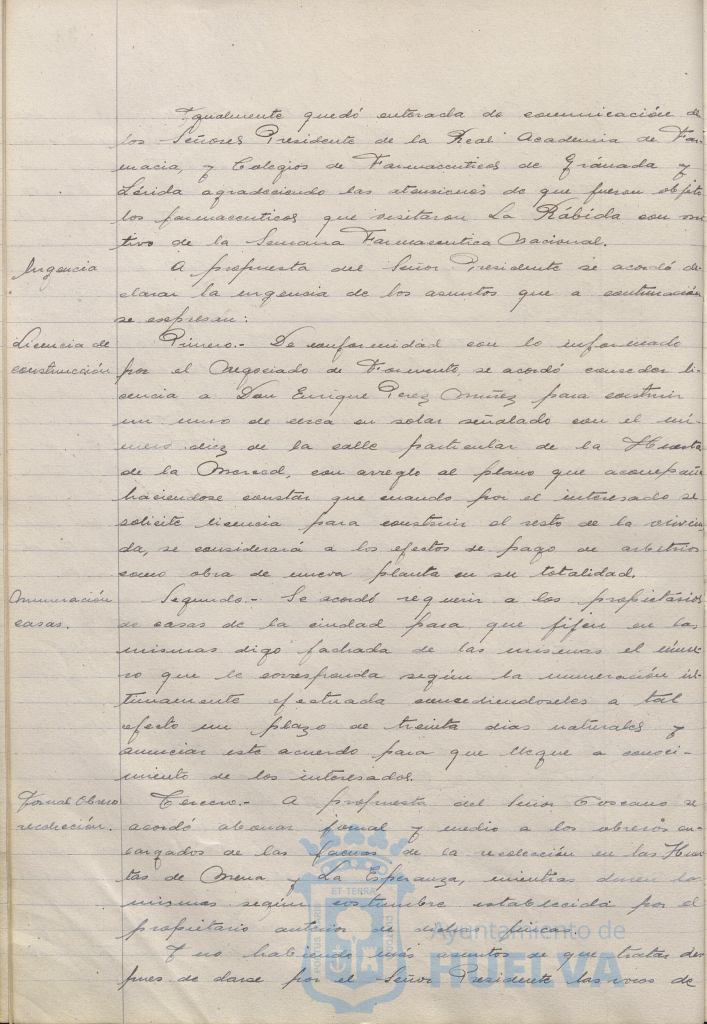 Igualmente quedó enterada de comunicación de
los Señores Presidente de la Real Academia de Far-
macia, y Colegios de Farmaceuticos de Granada y
Lérida agradeciendo las atensiones de que fueron objeto
los farmaceuticos que visitaron La Rábida con mo-
tivo de la Semana Farmaceutica Nacional.
Urgencia
A propuesta del Señor Presidente se acordó de-
clarar la urgencia de los asuntos que a continuación
se expresan:
Licencia de
construcción
Primero.- De conformidad con lo informado
por el Negociado de Fomento, se acordó conceder li-
cencia a Don Enrique Perez Muñez para construir
un muro de cerca en solar señalado con el nú-
mero diez de la calle particular de la Huerta
de la Merced, con arreglo al plano que acompaña
haciendose constar que cuando por el interesado se
solicite licencia para construir el resto de la vivien-
da, se considerará a los efectos de pago de arbitrios
como obra de nueva planta en su totalidad.
Numeración
casas.
Segundo.- Se acordó requerir a los propietarios
de casas de la ciudad para que fijen en las
mismas digo fachada de las mismas el núme-
ro que le corresponda según la numeración úl-
timamente efectuada concediendoseles a tal
efecto un plazo de treinta dias naturales y
anunciar este acuerdo para que llegue a conoci-
miento de los interesados.
Jornal Obrero
recolección.
Tercero.- A propuesta del Señor Toscano se
acordó abonar jornal y medio a los obreros en-
cargados de las faenas de la recolección en las Huer-
tas de Mena y La Esperanza, mientras duren las
mismas según costumbre establecida por el
propietario anterior de dichas fincas.
Y no habiendo más asuntos de que tratar des-
pues de darse por el Señor Presidente las voces de
PORTUS MARIS
ET TERRAE
CUSTODIA
Ayuntamiento de
HUELVA